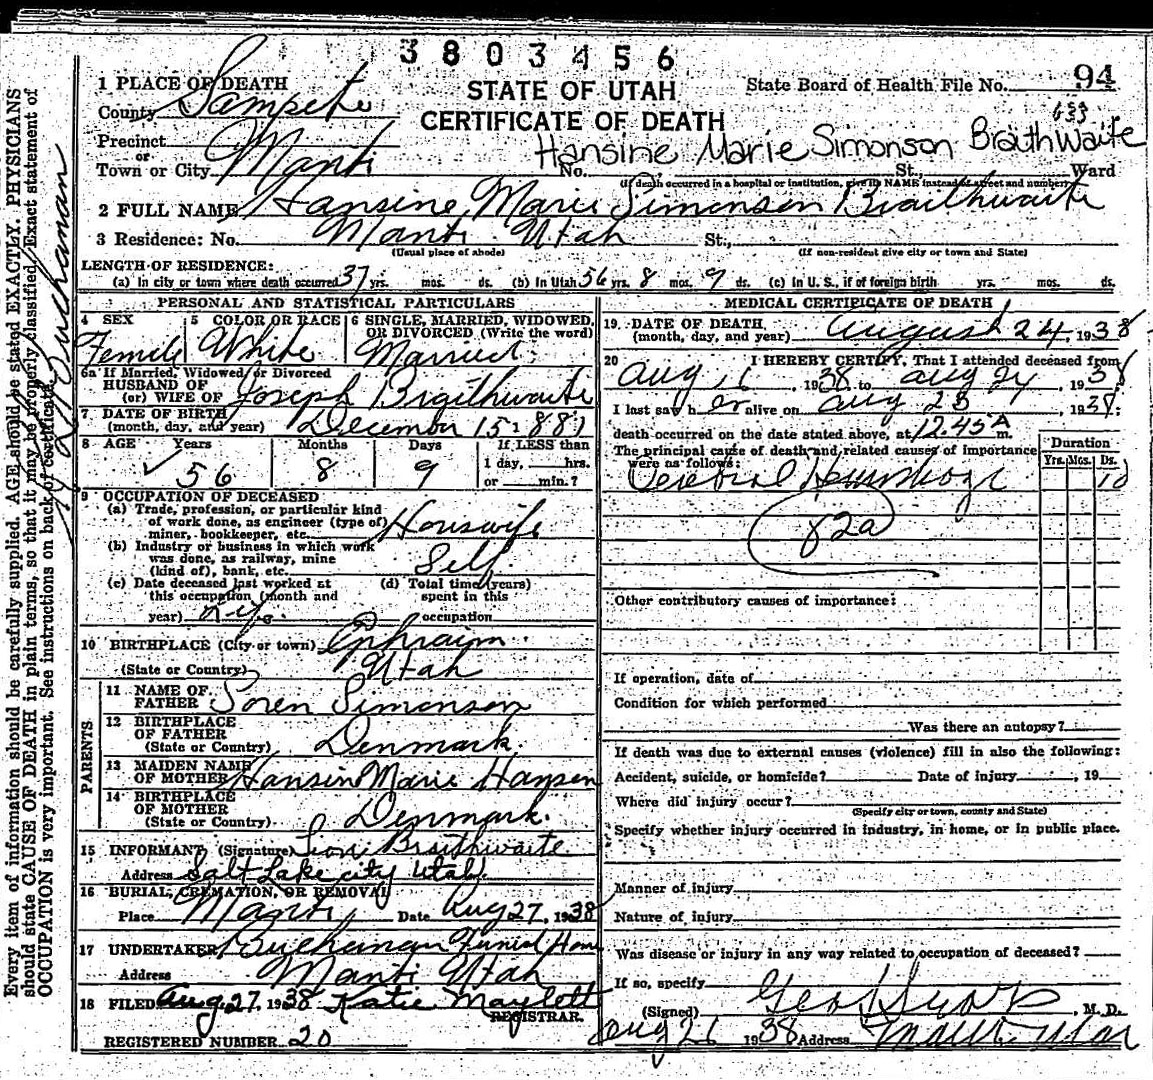 3803456
1 PLACE OF DEATH
STATE OF UTAH
State Board of Health File No. 94
County Sanpete
CERTIFICATE OF DEATH
633
Precinct
Hansine Marie Simonson Braithwaite
or
Town or City Manti No. St., Ward
(If death occurred in a hospital or institution, give its NAME instead of street and number)
2 FULL NAME Hansine Marie Simonson Braithwaite
3 Residence: No. Manti Utah St.,
(Usual place of abode) (If non-resident give city or town and State)
LENGTH OF RESIDENCE:
(a) In city or town where death occurred 37 yrs. mos. ds. (b) In Utah 56 yrs. 8 mos. 9 ds. (c) In U. S., if of foreign birth yrs. mos. ds.
PERSONAL AND STATISTICAL PARTICULARS
4 SEX
Female
5 COLOR OR RACE
White
6 SINGLE, MARRIED, WIDOWED,
OR DIVORCED (Write the word)
Married
6a If Married, Widowed, or Divorced
HUSBAND OF
(or) WIFE OF Joseph Braithwaite
7 DATE OF BIRTH
(month, day, and year) December 15-1881
8 AGE Years Months Days If LESS than
56 8 9 1 day, hrs.
or min.?
9 OCCUPATION OF DECEASED
(a) Trade, profession, or particular kind
of work done, as engineer (type of)
miner, bookkeeper, etc. Housewife
(b) Industry or business in which work
was done, as railway, mine
(kind of), bank, etc. Self
(c) Date deceased last worked at
this occupation (month and
year)
(d) Total time (years)
spent in this
occupation
10 BIRTHPLACE (City or town) Ephraim
(State or Country) Utah
PARENTS
11 NAME OF
FATHER Soren Simonson
12 BIRTHPLACE
OF FATHER
(State or Country) Denmark.
13 MAIDEN NAME
OF MOTHER Hansin Marie Hansen
14 BIRTHPLACE
OF MOTHER
(State or Country) Denmark.
15 INFORMANT (Signature) Braithwaite
Address Salt Lake city Utah
16 BURIAL, CREMATION, OR REMOVAL
Place Manti Date Aug 27, 1938
17 UNDERTAKER Buchanan Funeral Home
Address Manti Utah
18 FILED Aug 27, 1938 Katie Maylett
REGISTRAR.
REGISTERED NUMBER 20
MEDICAL CERTIFICATE OF DEATH
19. DATE OF DEATH
(month, day, and year) August 24, 1938
20 I HEREBY CERTIFY, That I attended deceased from
Aug 16, 1938 to Aug 24, 1938
I last saw her alive on Aug 23 1938;
death occurred on the date stated above, at 12.45 A m.
The principal cause of death and related causes of importance
were as follows:
Duration
Yrs. Mos. Ds.
Cerebral Hemorhage 10
82a
Other contributory causes of importance:
If operation, date of
Condition for which performed
Was there an autopsy?
If death was due to external causes (violence) fill in also the following:
Accident, suicide, or homicide? Date of injury , 19
Where did injury occur?
(Specify city or town, county and State)
Specify whether injury occurred in industry, in home, or in public place.
Manner of injury
Nature of injury
Was disease or injury in any way related to occupation of deceased?
If so, specify
(Signed) M. D.
Aug 26 1938 Address Manti Utah
Every item of information should be carefully supplied. AGE should be stated EXACTLY. PHYSICIANS
should state CAUSE OF DEATH in plain terms, so that it may be properly classified. Exact statement of
OCCUPATION is very important. See instructions on back of certificate.
Buchanan